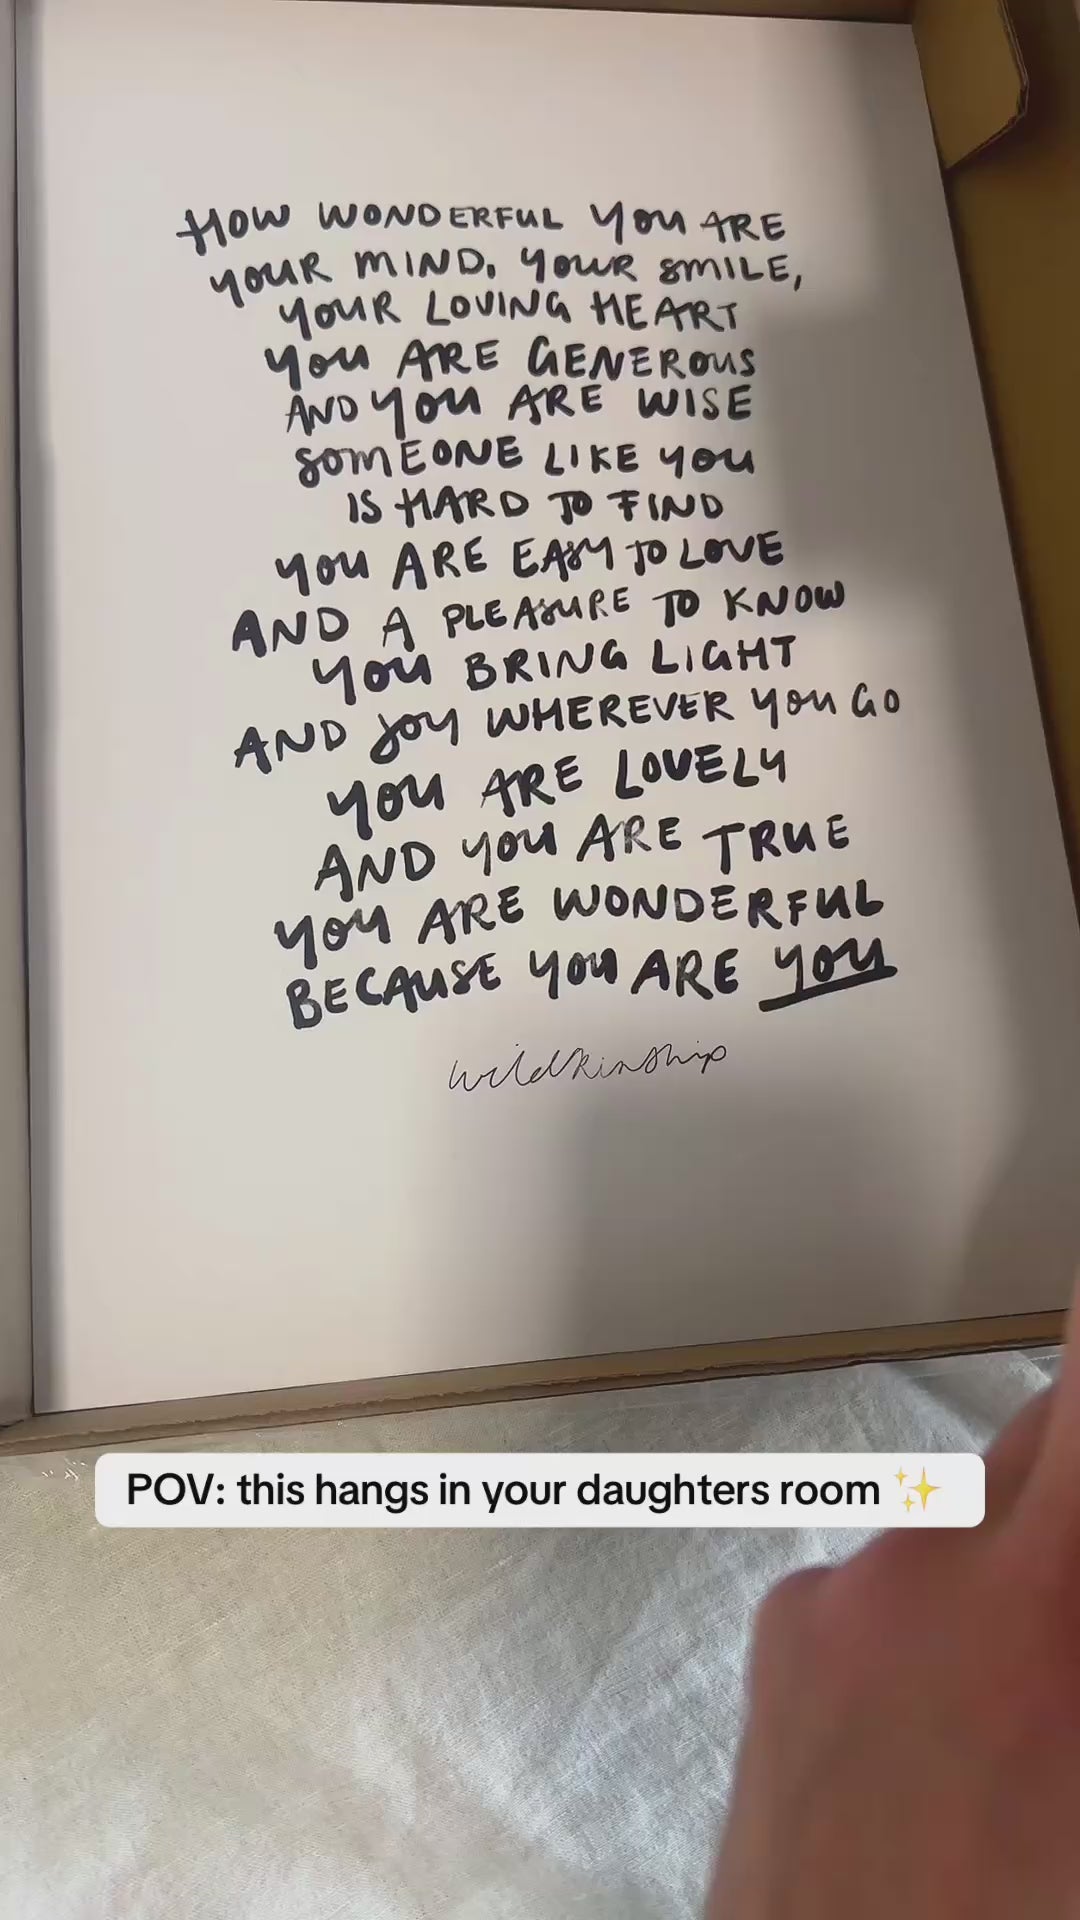 HOW WONDERFUL YOU ARE
YOUR MIND, YOUR SMILE,
YOUR LOVING HEART
YOU ARE GENEROUS
AND YOU ARE WISE
SOMEONE LIKE YOU
IS HARD TO FIND
YOU ARE EASY TO LOVE
AND A PLEASURE TO KNOW
YOU BRING LIGHT
AND JOY WHEREVER YOU GO
YOU ARE LOVELY
AND YOU ARE TRUE
YOU ARE WONDERFUL
BECAUSE YOU ARE YOU
wildkinship
POV: this hangs in your daughters room ✨